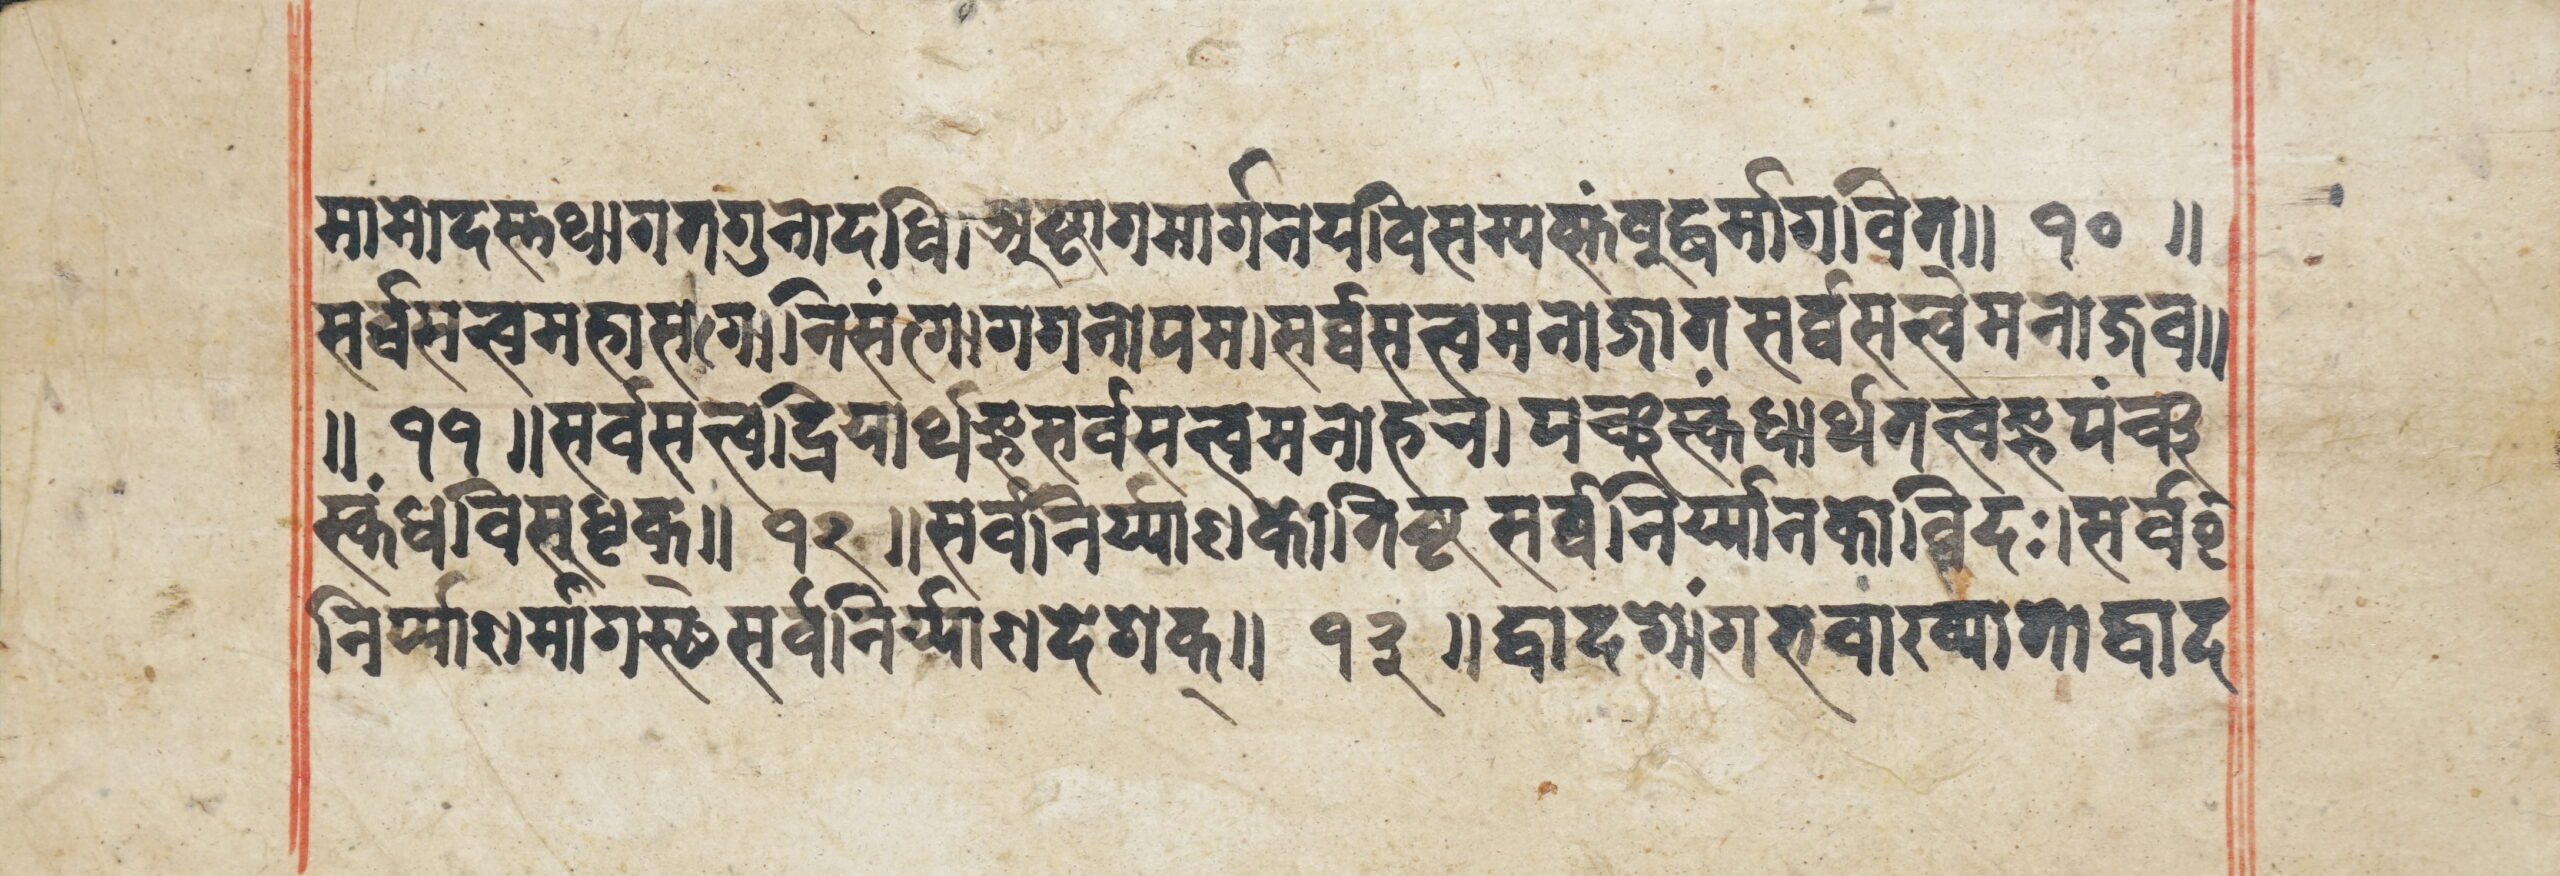 मामोदस्तथागतगुनोदधि।अष्टागमार्गनयविसम्यक्संबुद्धर्मागवित्॥ १० ॥
सर्व्वसत्त्वमहासंगो।निसंगो।गगनोपम।सर्व्वसत्त्वमनोजात सर्व्वसत्त्वेमनोजव॥
॥ ११ ॥सर्वसत्त्वद्रियार्थज्ञसर्वसत्त्वमनोहन। पञ्चस्कंधार्थतत्त्वज्ञपंञ्च
स्कंधविसुधृक॥ १२ ॥सर्वनिर्य्याणकोतिष्ट सर्वनिर्य्यानकोविदः।सर्व
निर्य्याणर्मागस्छेसर्वनिर्य्याणदेशक्॥ १३ ॥द्वादशांगहवाखातोद्वाद